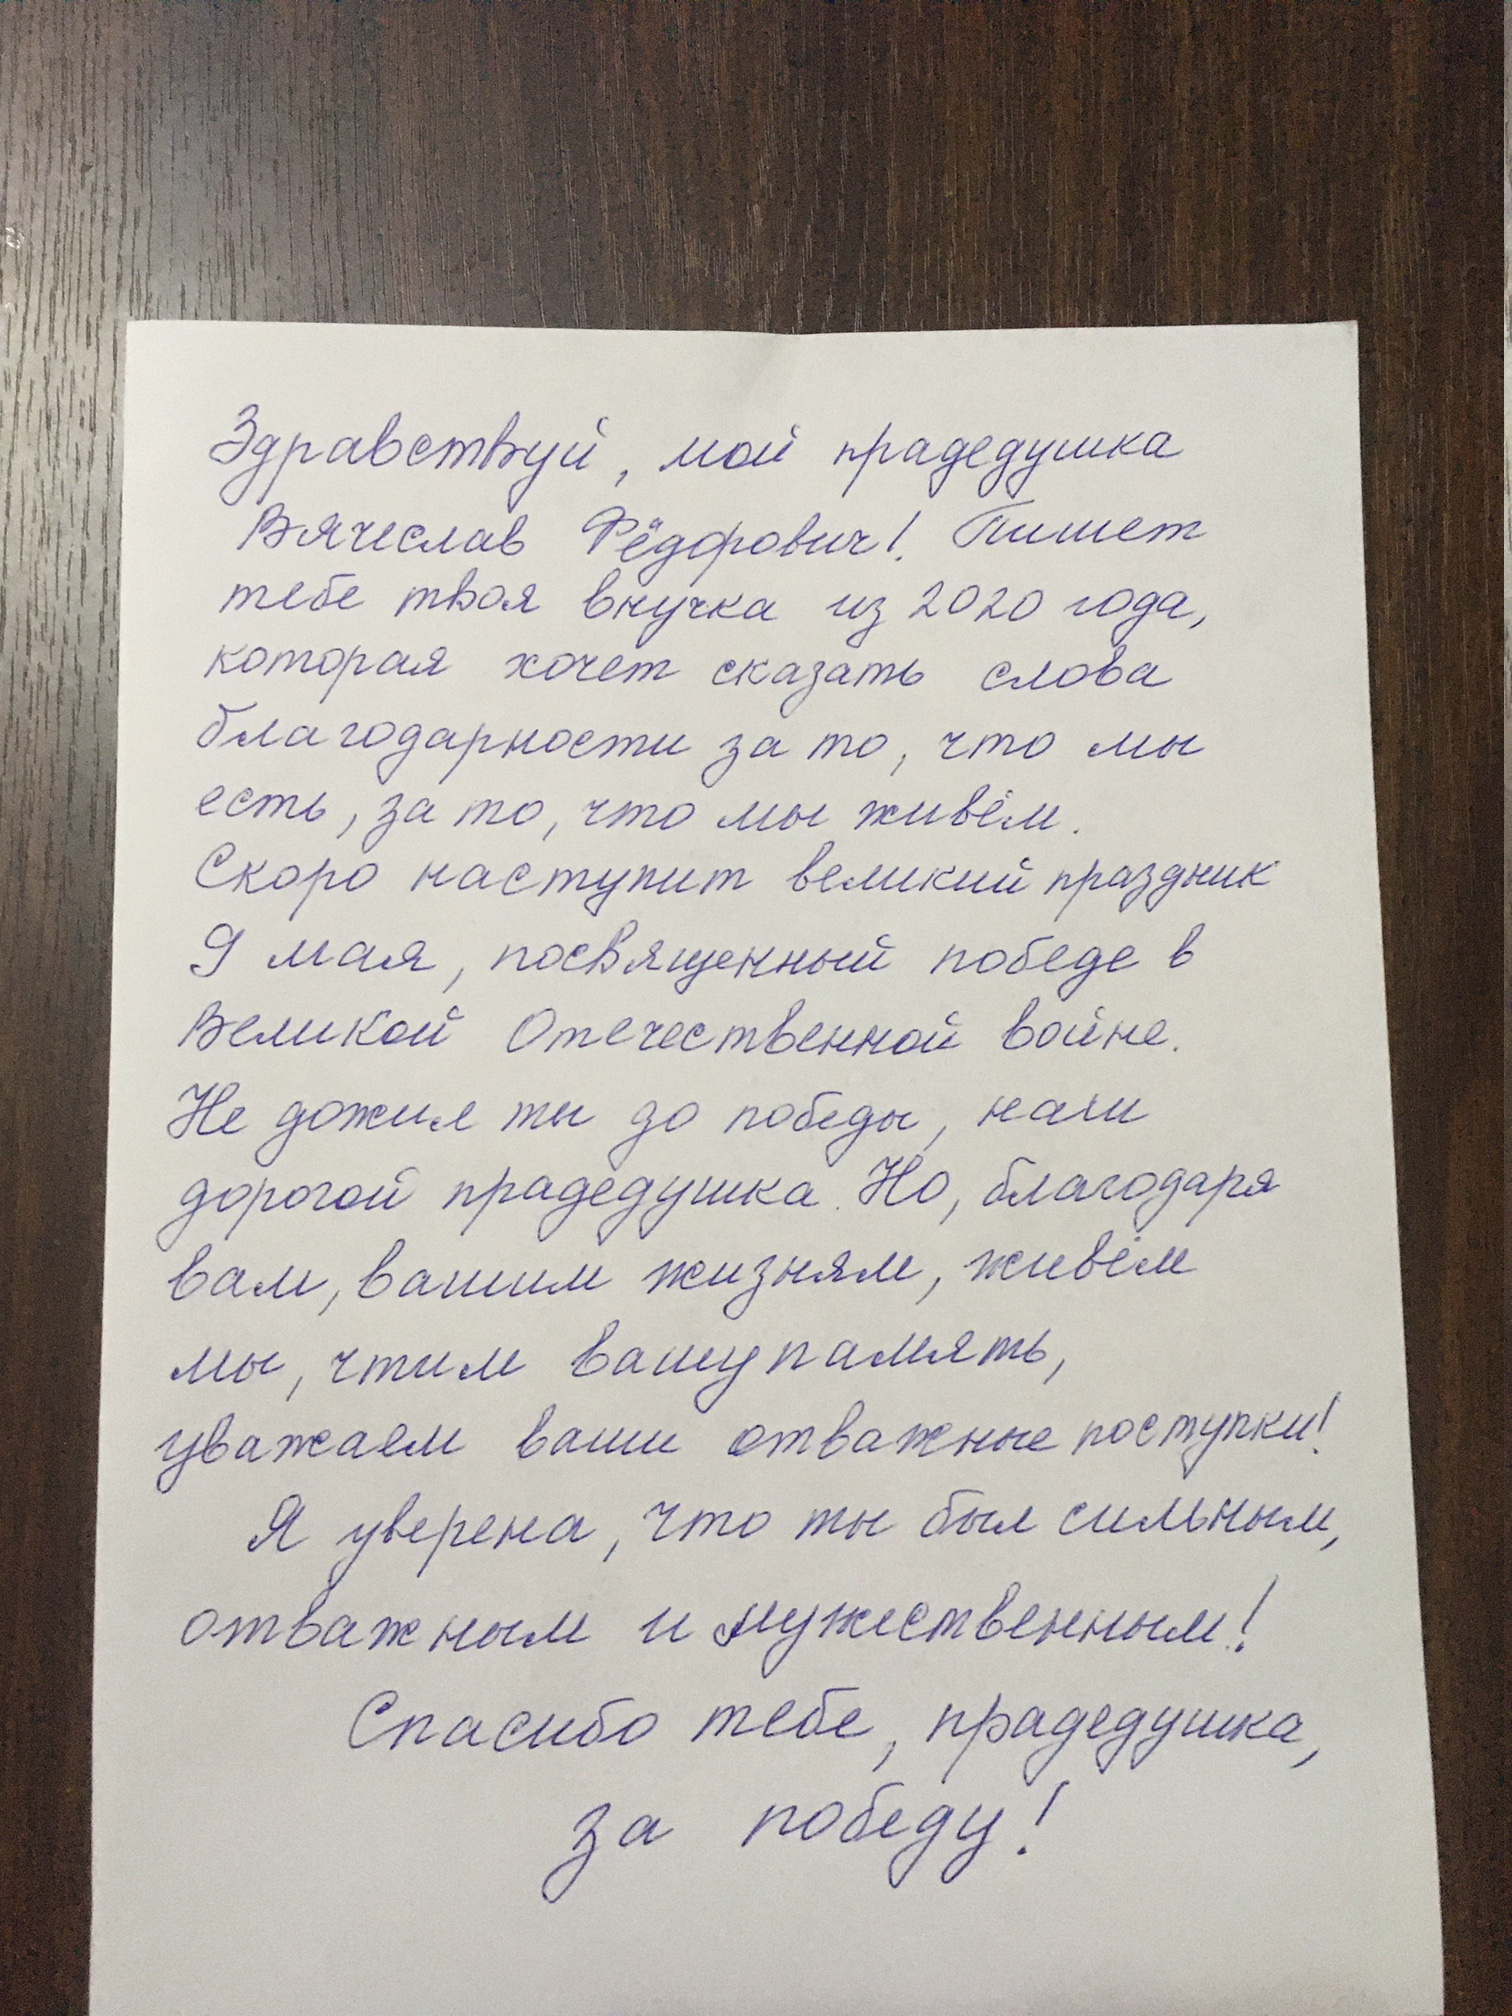 Здравствуй, мой прадедушка
Вячеслав Фёдорович! Пишет
тебе твоя внучка из 2020 года,
которая хочет сказать слова
благодарности за то, что мы
есть, за то, что мы живём.
Скоро наступит великий праздник
9 мая, посвященный победе в
Великой Отечественной войне.
Не дожил ты до победы, наш
дорогой прадедушка. Но, благодаря
вам, вашим жизням, живём
мы, чтим вашу память,
уважаем ваши отважные поступки!
Я уверена, что ты был сильным,
отважным и мужественным!
Спасибо тебе, прадедушка,
за победу!